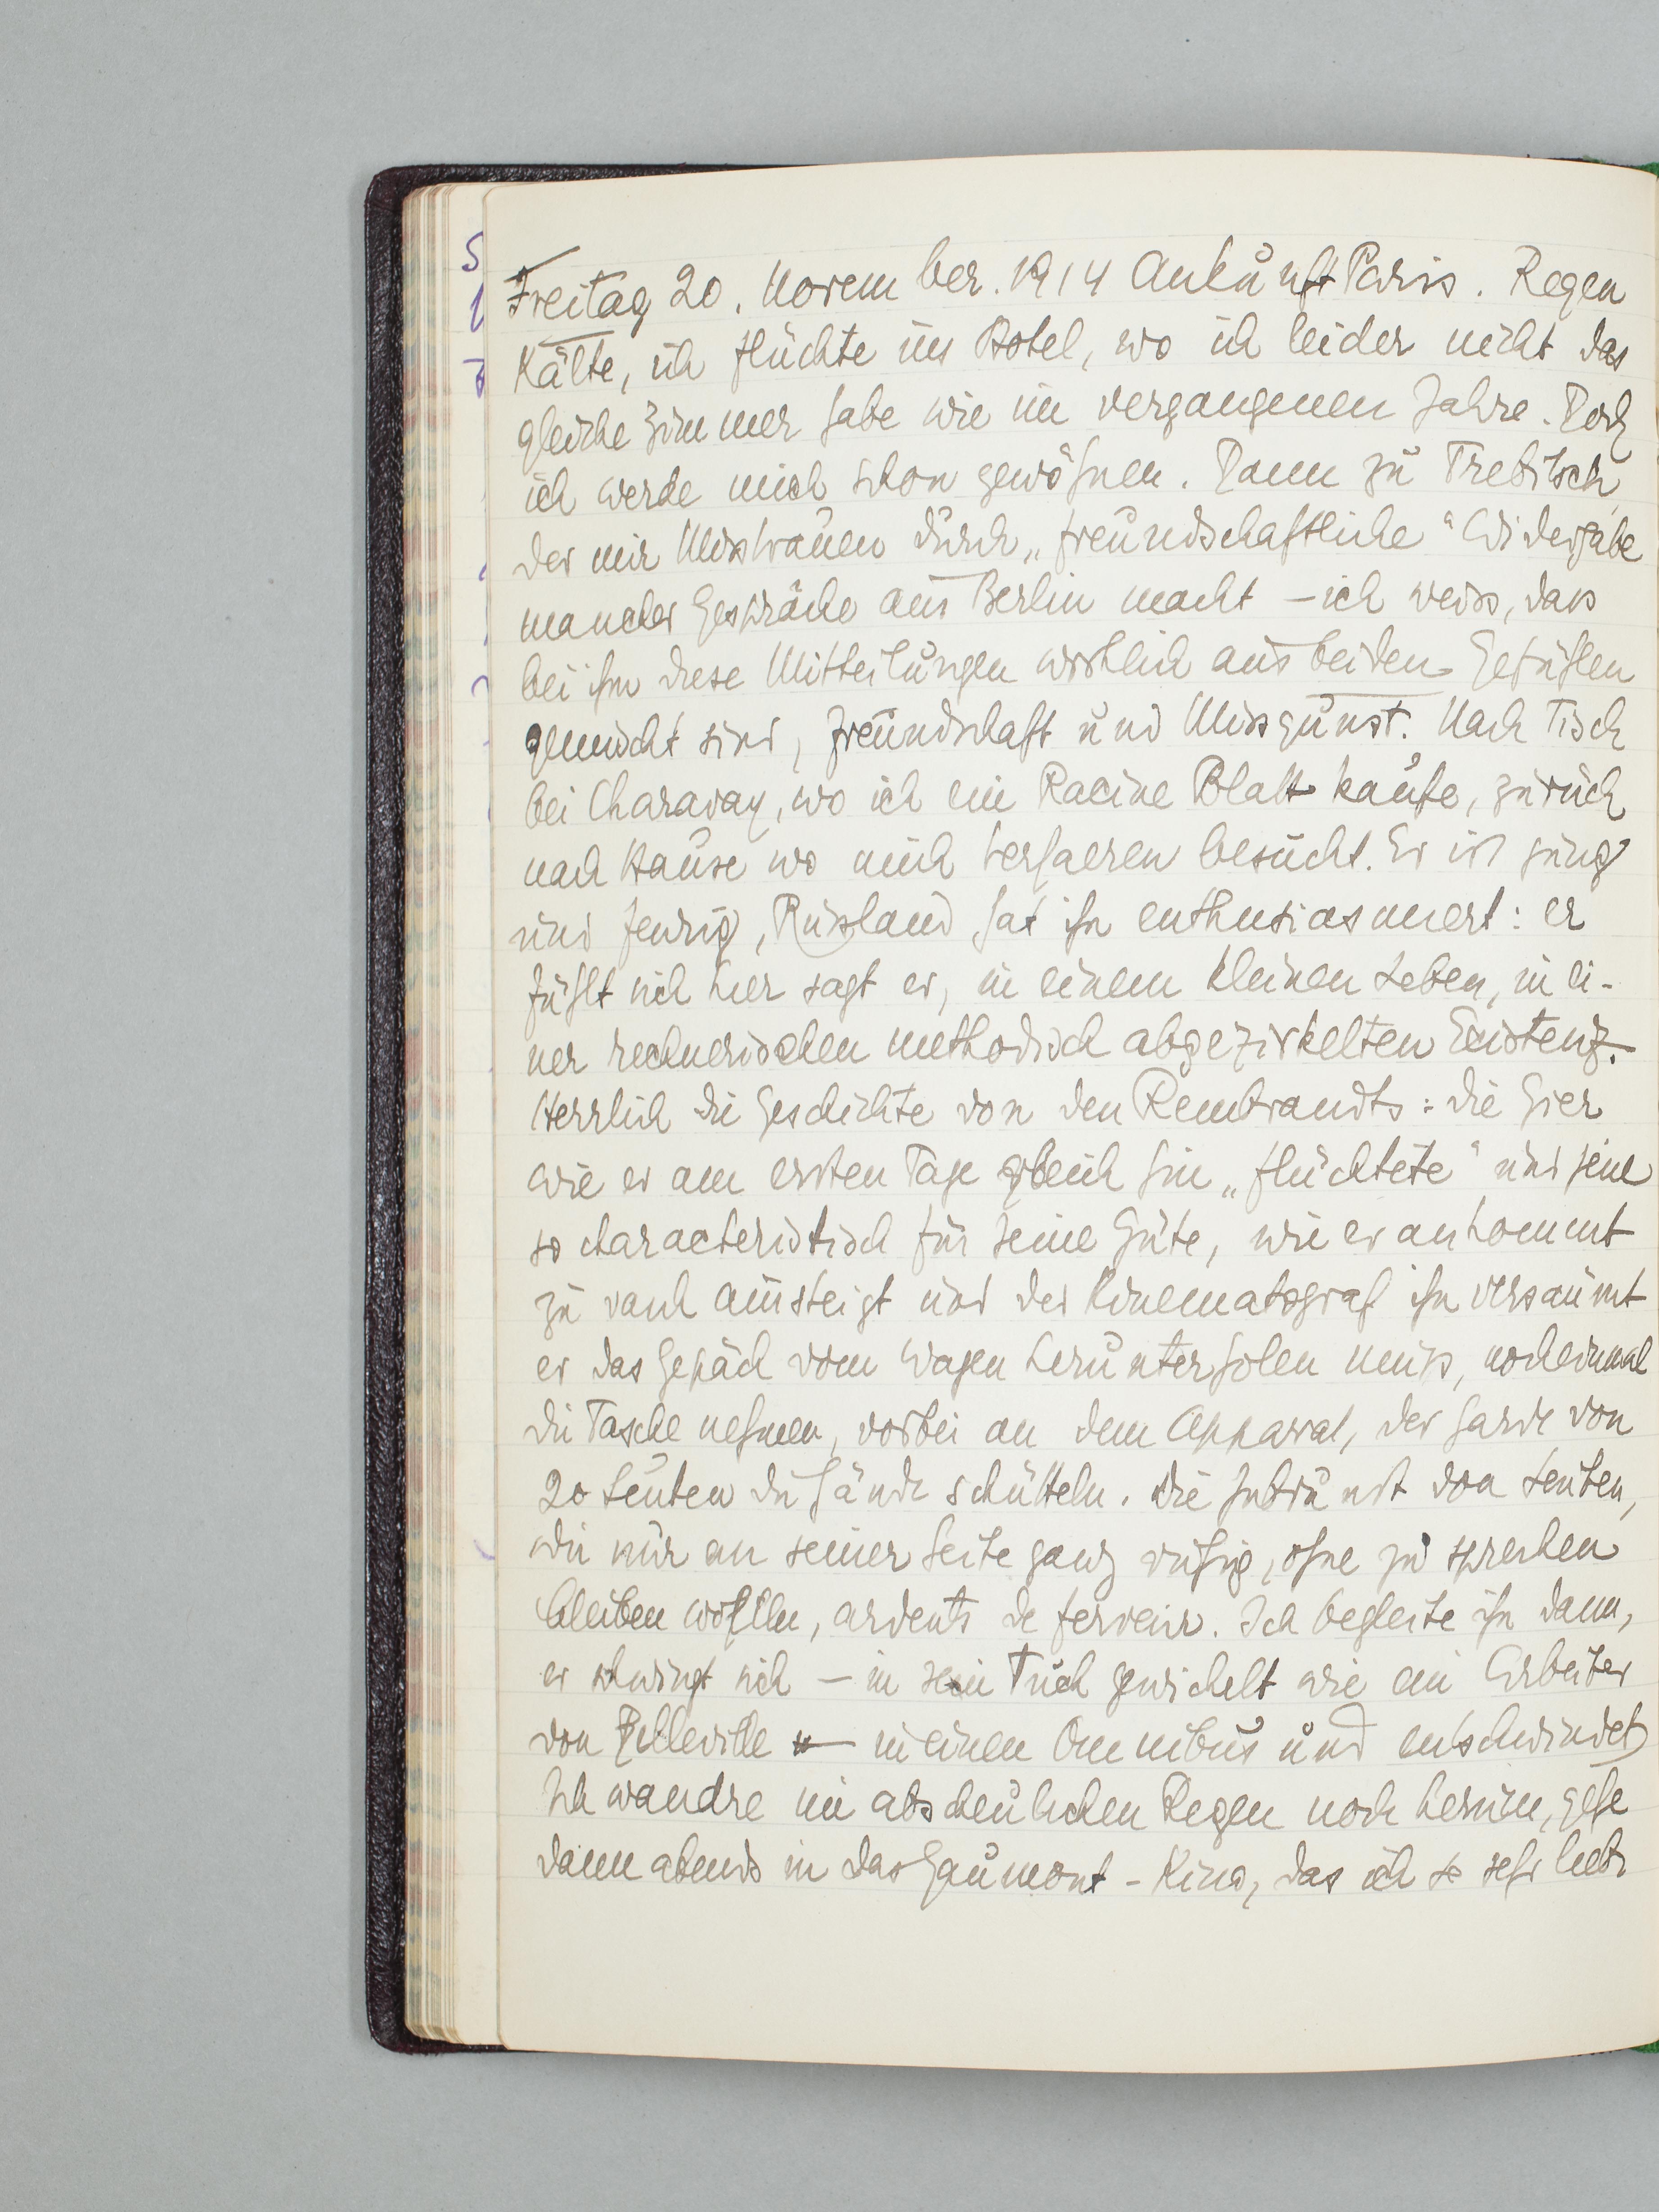 Freitag 20. November. 1914 Ankunft Paris. Regen
Kälte, ich flüchte ins Hotel, wo ich leider nicht das
gleiche Zimmer habe wie im vergangenen Jahre. Doch
ich werde mich schon gewöhnen. Dann zu Trebitsch,
der mir Misstrauen durch „freundschaftliche“ Widergabe
mancher Gespräche aus Berlin macht – ich weiss, dass
bei ihm diese Mitteilungen wirklich aus beiden Gefühlen
gemischt sind, Freundschaft und Missgunst. Nach Tisch
bei Charavay, wo ich ein Racine Blatt kaufe, zurück
nach Hause wo mich Verhaeren besucht. Er ist jung
und feurig, Russland hat ihn enthusiasmiert: er
fühlt sich hier sagt er, in einem kleinen Leben, in ei-
ner rechnerischen methodisch abgezirkelten Existenz.
Herrlich die Geschichte von den Rembrandts: die Gier
wie er am ersten Tage gleich hin „flüchtete“ und jene
so characteristisch für seine Güte, wie er ankommt
zu rasch aussteigt und der Kinematograf ihn versäumt
er das Gepäck vom Wagen herunterholen muss, nocheinmal
die Tasche nehmen, vorbei an dem Apparat, der Garde von
20 Leuten die Hände schütteln. Die Inbrunst von Leuten,
die nur an seiner Seite ganz ruhig, ohne zu sprechen
bleiben wollen, ardents de ferveur. Ich begleite ihn dann,
er schwingt sich – in sein Tuch gewickelt wie ein Arbeiter
von Belleville – in einen Omnibus und entschwindet
Ich wandre im abscheulichen Regen noch herum, gehe
dann abends in das Gaumont-Kino, das ich so sehr liebe